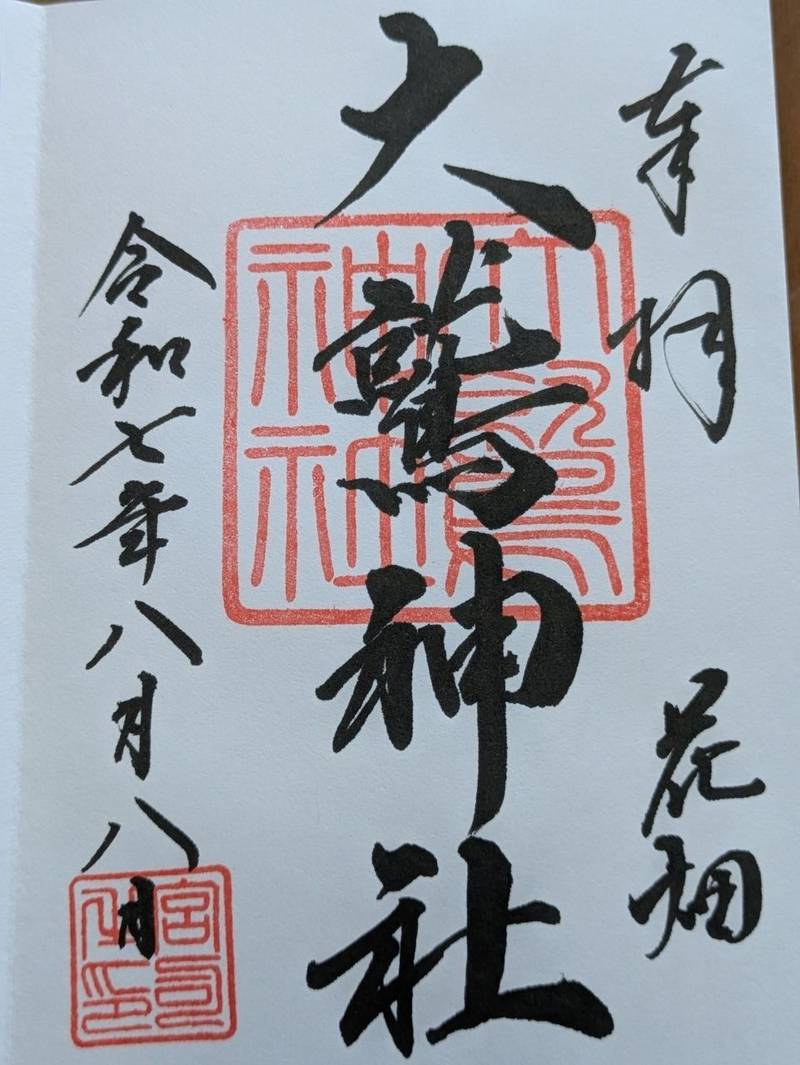 奉拝
花畑
大鷲神社
大鷲神社
令和七年八月八日
宮司之印